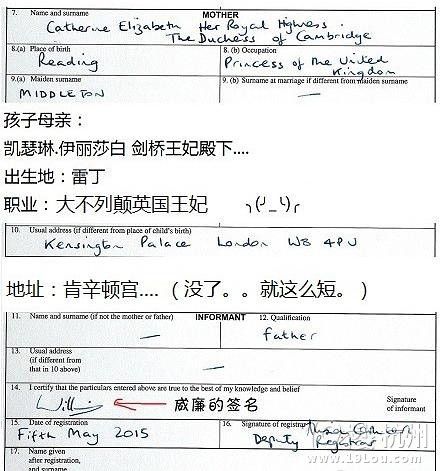 7. Name and surname MOTHER
Catherine Elizabeth Her Royal Highness
The Duchess of Cambridge
8.(a) Place of birth 8. (b) Occupation
Reading Princess of the United
Kingdom
9.(a) Maiden surname 9. (b) Surname at marriage if different from maiden surname
MIDDLETON —
孩子母亲：
凯瑟琳.伊丽莎白 剑桥王妃殿下....
出生地：雷丁
职业：大不列颠英国王妃
10. Usual address (if different from place of child's birth)
Kensington Palace London W8 4PU
地址：肯辛顿宫....（没了。。就这么短。）
11. Name and surname (if not the mother or father) INFORMANT 12. Qualification
— Father
13. Usual address
(if different
from that in 10 above) —
14. I certify that the particulars entered above are true to the best of my knowledge and belief
Signature
of informant
威廉的签名
15. Date of registration 16. Signature of registrar
Fifth May 2015 Deputy Registrar
17. Name given
after registration,
and surname
www.19lou.com